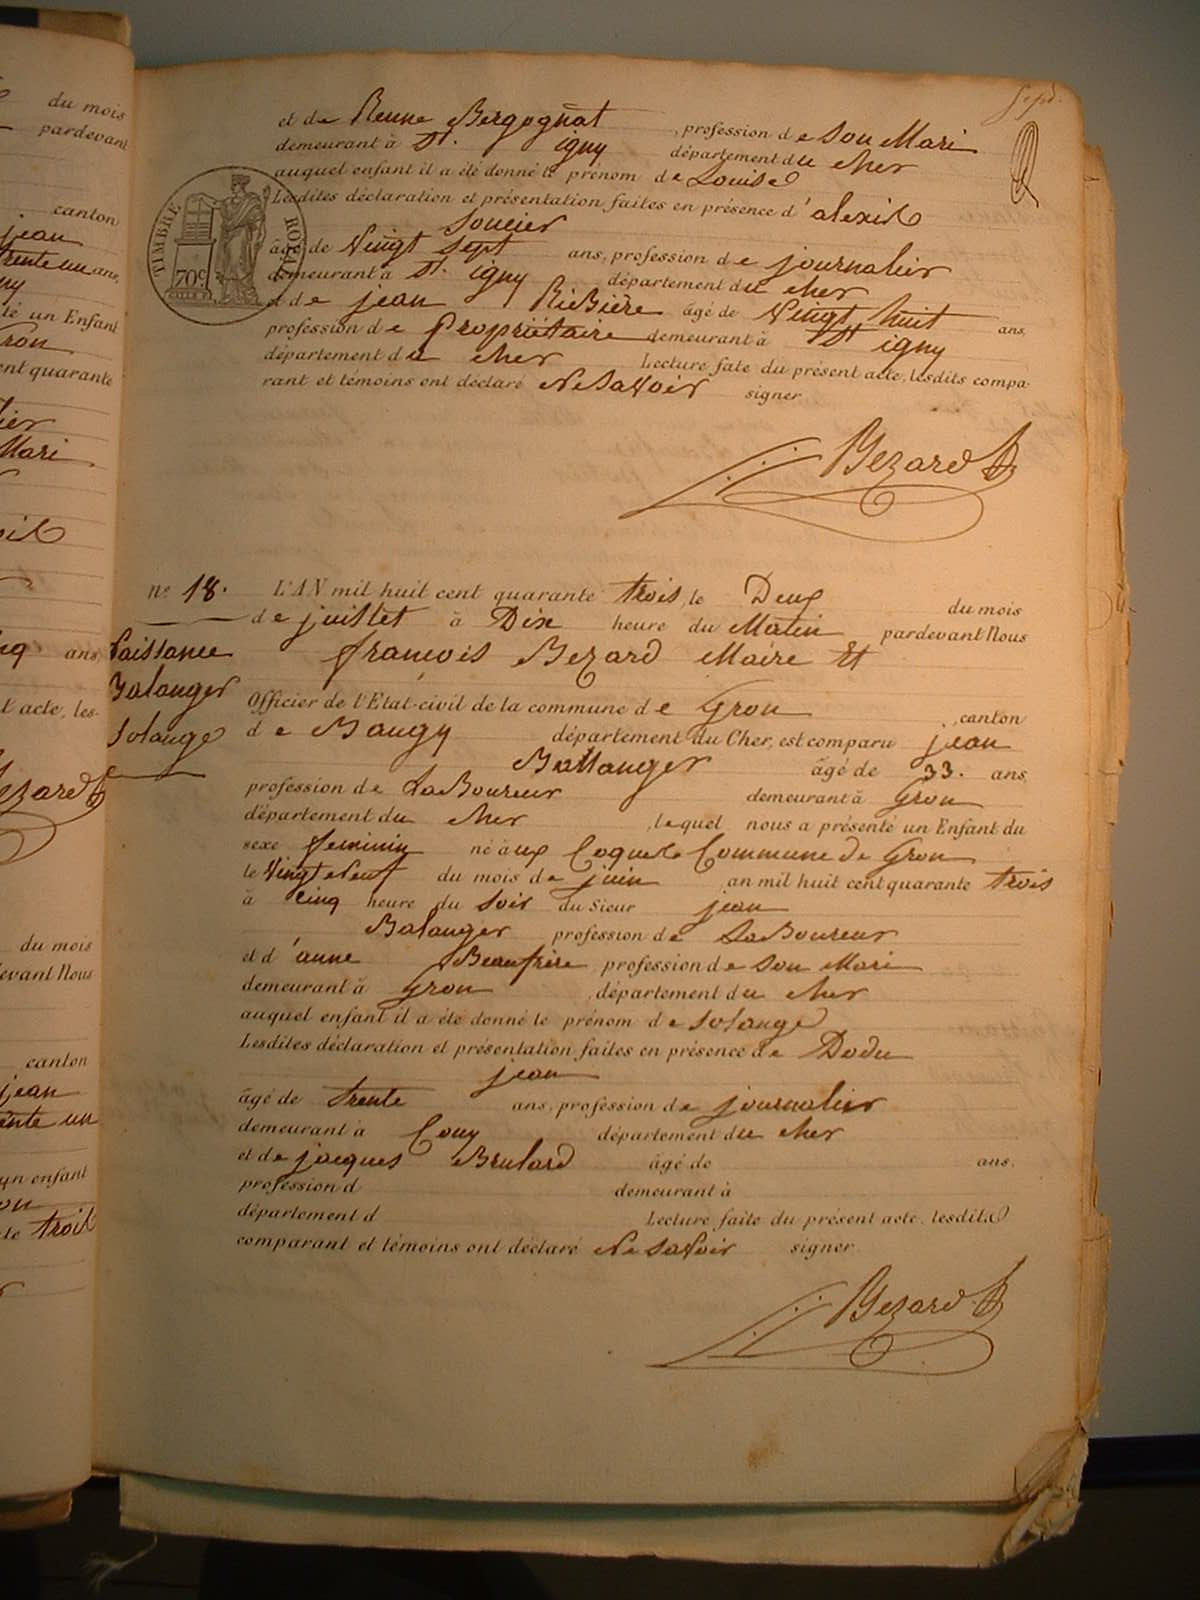 et de Reune Bergognat, profession de son Mari
demeurant à St. igny département du cher
auquel enfant il a été donné le prénom de Louise
Lesdites déclaration et présentation faites en présence d'alexis
Soucier
âgé de Vingt sept ans, profession de journalier
demeurant à St. igny département du cher
et de jean RiBière âgé de Vingt huit ans,
profession de Propriétaire demeurant à St igny
département du cher Lecture fate du présent acte, lesdits compa-
rant et témoins ont déclaré Ne Savoir signer
Bezard
TIMBRE ROYAL
70c
no 18. L'AN mil huit cent quarante trois, le Deux du mois
de juillet à Dix heure du Matin pardevant Nous
Naissance françois Bezard Maire Et
Balanger Officier de l'Etat-civil de la commune de Gron canton
Solange de Baugy département du Cher, est comparu jean
Battanger âgé de 33. ans,
profession de LaBoureur demeurant à Gron
département du cher, lequel nous a présenté un Enfant du
sexe feminin né aux Coquets Commune de Gron
le Vingt Neuf du mois de juin an mil huit cent quarante trois
à cinq heure du Soir du Sieur jean
Balanger profession de LaBoureur
et d'anne Beaufrère, profession de son Mari
demeurant à Gron, département du cher
auquel enfant il a été donné le prénom de Solange
Lesdites déclaration et présentation faites en présence de Dodu
jean
âgé de trente ans, profession de journalier
demeurant à Couy département du cher
et de jacques Brulard âgé de ans.
profession d demeurant à
département d Lecture faite du présent acte, lesdits
comparant et témoins ont déclaré Ne Savoir signer.
Bezard
du mois
pardevant
canton
jean
trente un ans,
un Enfant
quarante
Mari
ans
acte, les-
Bezard
du mois
devant Nous
canton
jean
trente un
un enfant
trois